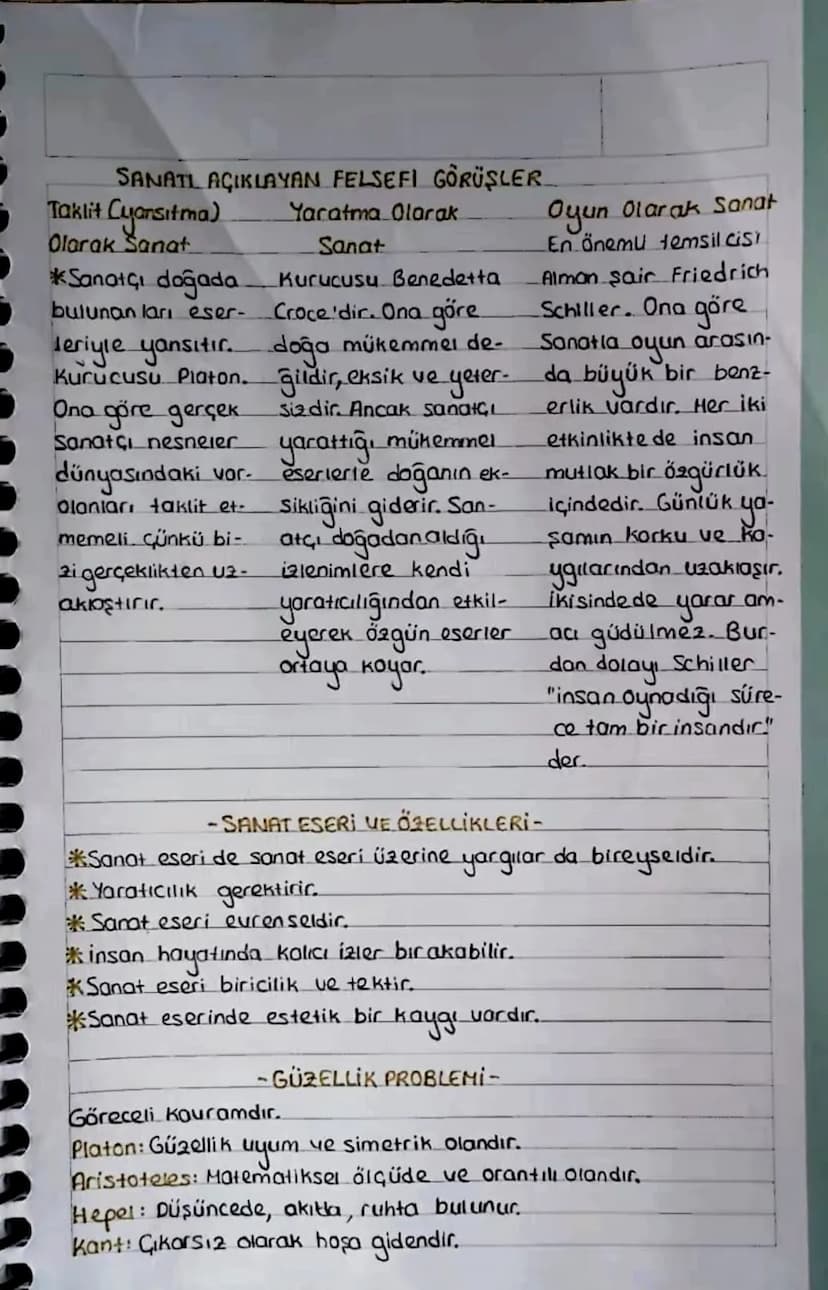 SANATI AÇIKLAYAN FELSEFİ GÖRÜŞLER
Taklit (yansıtma)
Olarak Sanat
*Sanatçı doğada
bulunanları eser-
leriyle yansıtır.
Kurucusu Platon.
Ona göre gerçek
sanatçı nesneler
dünyasındaki var-
olanları taklit et-
memeli çünkü bi-
zi gerçeklikten uz-
aklaştırır.
Yaratma Olarak
Sanat
Kurucusu Benedetta
Croce'dir. Ona göre
doğa mükemmel de-
ğildir, eksik ve yeter-
sizdir. Ancak sanatçı
yarattığı mükemmel
eserlerle doğanın ek-
sikliğini giderir. San-
atçı doğadan aldığı
izlenimlere kendi
yaratıcılığından etkil-
eyerek özgün eserler
ortaya koyar.
Oyun Olarak Sanat
En önemli temsilcisi
Alman şair Friedrich
Schiller. Ona göre
Sanatla oyun arasın-
da büyük bir benz-
erlik vardır. Her iki
etkinlikte de insan
mutlak bir özgürlük
içindedir. Günlük ya-
şamın korku ve ka-
ygılarından uzaklaşır.
İkisinde de yarar am-
acı güdülmez. Bur-
dan dolayı Schiller
"insan oynadığı süre-
ce tam bir insandır."
der.
- SANAT ESERİ VE ÖZELLİKLERİ -
*Sanat eseri de sanat eseri üzerine yargılar da bireyseldir.
* Yaratıcılık gerektirir.
* Sanat eseri evrenseldir.
* insan hayatında kalıcı izler bırakabilir.
*Sanat eseri biricilik ve tektir.
*Sanat eserinde estetik bir kaygı vardır.
- GÜZELLİK PROBLEMİ -
Göreceli kavramdır.
Platon: Güzellik uyum ve simetrik olandır.
Aristoteles: Matematiksel ölçüde ve orantılı olandır.
Hepel: Düşüncede, akılda, ruhta bulunur.
Kant: Çıkarsız olarak hoşa gidendir.